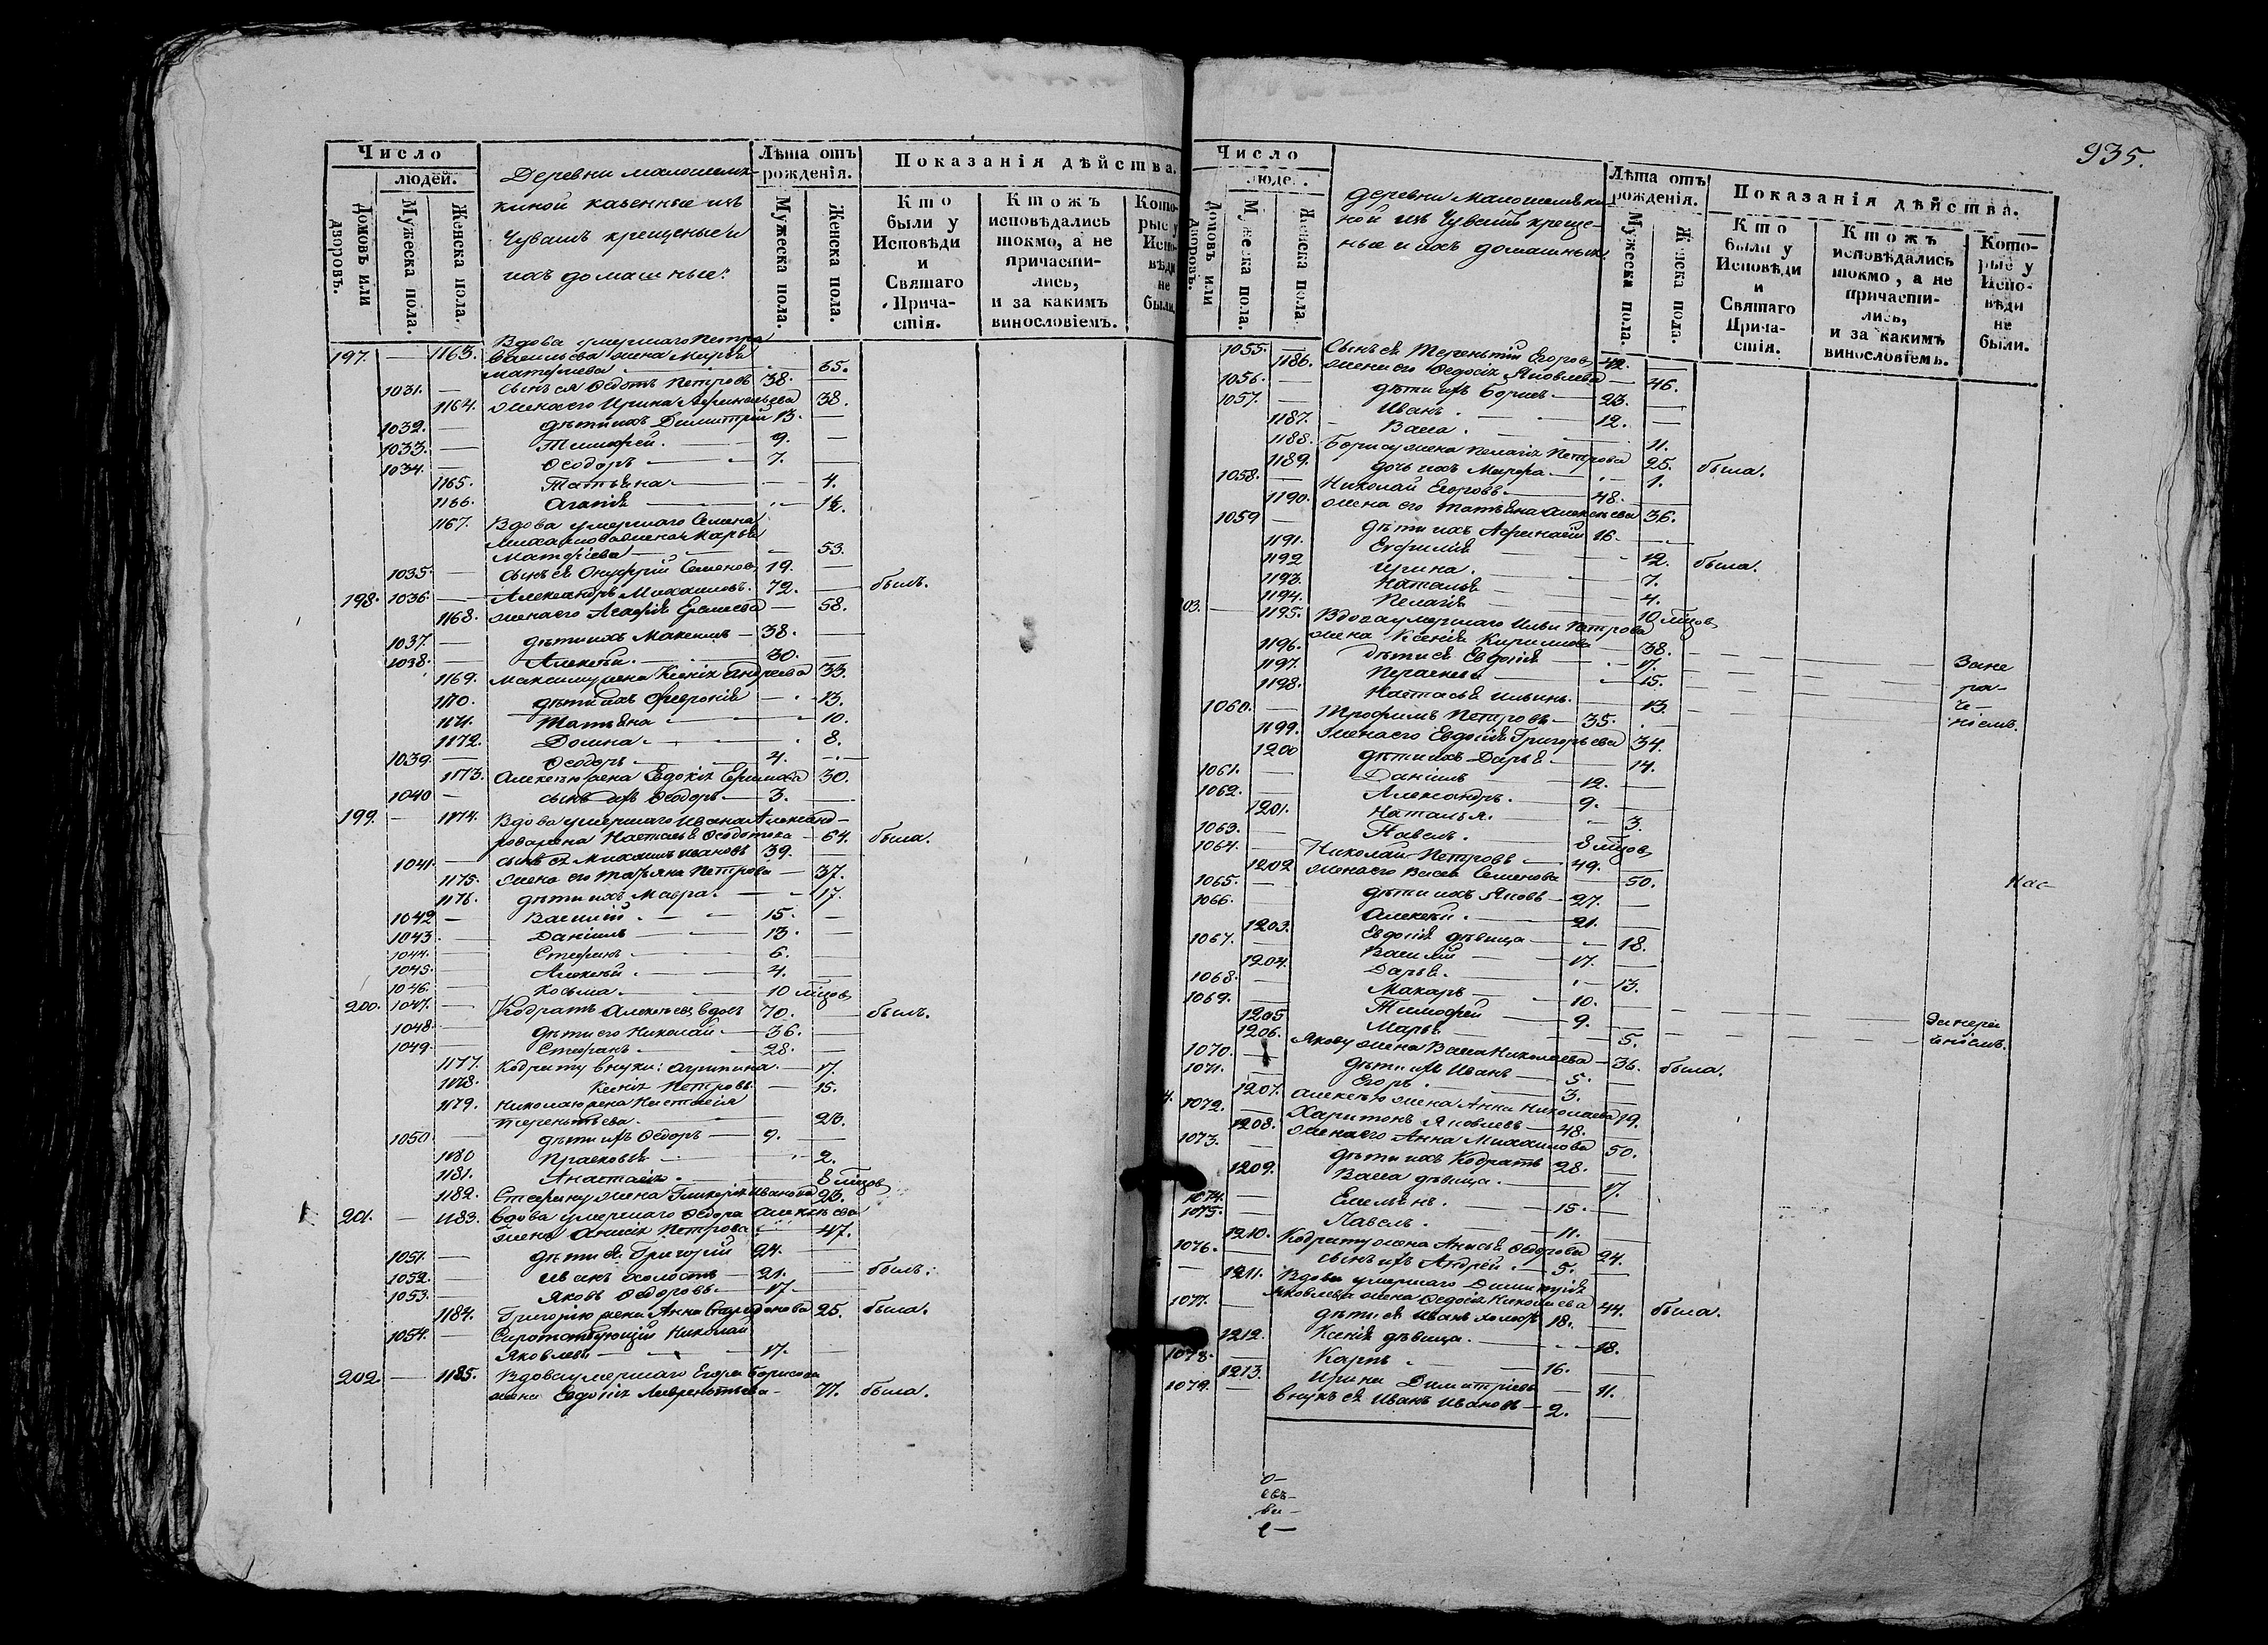 Число
людей.
Домовъ или дворовъ.
Мужеска пола.
Женска пола.
Деревни
киной казенные изъ
Чувашъ крещеные и
ихъ домашные:
Лѣта отъ рожденія.
Мужеска пола.
Женска пола.
Показанія дѣйства.
Кто были у Исповѣди и Святаго Прича-стія.
Ктожъ исповѣдались токмо, а не причасти-лись, и за какимъ винословіемъ.
Кото-рые у Испо-вѣди не были.
197. — 1163. Вдова умершаго Петра
Васильева жена Марья
65.
1031. — сынъ ея Ѳедотъ Петровъ 38. —
1164. жена его Ирина 38.
1032. — дѣти ихъ Димитрій 13. —
1033. — Тимофей. — 9. —
1034. — Ѳеодоръ — 7. —
1165. Татьяна — 4.
1166. Агапія — 12.
1167. Вдова умершаго Семена
Михайлова жена Марья
— 53.
1035. — сынъ ея Онуфрій Семеновъ 19. —
198. 1036. — Александръ Михайловъ. 72. — былъ.
1168. жена его Агафія — 58.
1037. — дѣти ихъ Максимъ — 38. —
1038. — Алексѣй. — 30. —
1169. Максиму жена Ксенія Андреева 33.
1170. дѣти ихъ Февронія — 13.
1171. Татьяна — 10.
1172. Домна — 8.
1039. — Ѳеодоръ — 4. —
1173. Алексѣю жена Евдокія 30.
1040 — сынъ ихъ Ѳеодоръ — 3. —
199. — 1174. Вдова умершаго Ивана Александ-
рова жена Настасья — 64. была.
1041. — сынъ ея Михаилъ Ивановъ 39.
1175. жена его Татьяна Петрова — 37.
1176. дѣти ихъ Мавра. — 17.
1042 — Василій — 15. —
1043. — Даніилъ — 13. —
1044. — Стефанъ — 6. —
1045. — Алексѣй — 4. —
1046. — Козьма. — 10 мѣсцов
200. 1047. — Кодратъ Алексѣевъ вдовъ 70. — былъ.
1048. — дѣти его Николай — 36. —
1049. — Стефанъ — 28. —
1177. Кодрату внуки: Агрипина — 17.
1178. Ксенія Петровы — 15.
1179. Николаю жена Настасія
Терентьева. — 23.
1050. — дѣти ихъ Ѳедоръ — 9. —
1180 Прасковья — 2.
1181. Анастасія — 8 мѣсцов
1182. Стефану жена Гликерія Иванова 23.
201. — 1183. Вдова умершаго Ѳедора Алексѣева
жена Анисія Петрова — 47.
1051. — дѣти ея Григорій 24. —
1052. — Иванъ холостъ — 21. — былъ.
1053. — Яковъ Ѳедоровы — 17 —
1184. Григорію жена Анна 25. была.
1054. — Николай
Яковлевъ — 17. —
202. — 1185. Вдова умершаго Егора Борисова
жена Евдокія Лаврентьева — 77. была.
935.
Число
людей.
Домовъ или дворовъ.
Мужеска пола.
Женска пола.
деревни
ной изъ Чувашъ креще-
ные и ихъ домашные
Лѣта отъ рожденія.
Мужеска пола.
Женска пола.
Показанія дѣйства.
Кто были у Исповѣди и Святаго Прича-стія.
Ктожъ исповѣдались токмо, а не причасти-лись, и за какимъ винословіемъ.
Кото-рые у Испо-вѣди не были.
1055. — Сынъ ея Терентій Егоровъ 42. —
1186. жена его Ѳедосія Яковлева — 46.
1056. — дѣти ихъ Борисъ — 23. —
1057. — Иванъ — 12. —
1187. Васса — 11.
1188. Борису жена Пелагія Петрова 25. была.
1189. дочь ихъ Марфа — 1.
1058. — Николай Егоровъ — 48. —
1190. жена его Татьяна Алексѣева 36.
1059 — дѣти ихъ Афанасій 16. —
1191. Евфимія — 12. была.
1192 Ирина — 7.
1193. Наталья — 4.
1194. Пелагія — 10 мѣсцов
03. — 1195. Вдова умершаго Ильи Петрова
жена Ксенія Кирилова 38. — Зане
1196. дѣти ея Евдокія — 17. — ра-
1197. — 15. — че-
1198. Настасья Ильины — 13. — ніемъ.
1060. — Трофимъ Петровъ — 35. —
1199. жена его Евдокія Григорьева 34.
1200 дѣти ихъ Дарья — 14.
1061. — Даніилъ — 12. —
1062. — Александръ — 9. —
1201. Наталья. — 3.
1063. — Павелъ — 8 мѣсцов
1064. — Николай Петровъ — 49. —
1202 жена его Васса Семенова — 50.
1065. — дѣти ихъ Яковъ — 27. —
1066. — Алексѣй — 21. —
1203. Евдокія дѣвица — 18.
1067. — Василій — 17. —
1204. Дарья — 13.
1068. — Макаръ — 10. —
1069. — Тимофей — 9. —
1205 Марья — 5.
1206. Якову жена Васса Николаева 36. была.
1070. — дѣти ихъ Иванъ — 5. —
1071. — Егоръ — 3. —
1207. Алексѣю жена Анна Николаева 19.
4. 1072. — Харитонъ Яковлевъ — 48. —
1208. жена его Анна Михайлова 50.
1073. — дѣти ихъ Кодратъ 28. —
1209. Васса дѣвица — 17.
1074. — Емельянъ. — 15. —
1075. — Павелъ. — 11. —
1210. Кодрату жена Анисья Ѳедорова 24.
1076. — сынъ ихъ Андрей — 5. —
1211. Вдова умершаго Димитрія
Яковлева жена Ѳедосія Николаева 44. была.
1077. — дѣти ея Иванъ холостъ 18. —
1212. Ксенія дѣвица — 18.
1078. — Карпъ — 16. —
1213. Ирина Димитріевы — 11.
1079. — внукъ ея Иванъ Ивановъ — 2. —